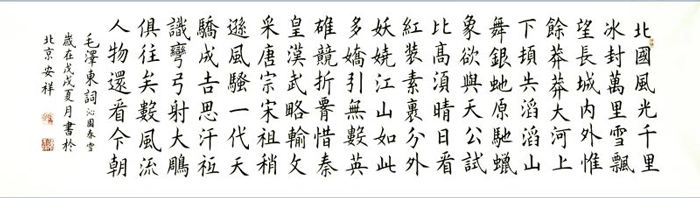 北國風光千里
冰封萬里雪飄
望長城内外惟
餘莽莽大河上
下頓失滔滔山
舞銀虵原馳蠟
象欲與天公試
比高須晴日看
紅裝素裹分外
妖嬈江山如此
多嬌引無數英
雄競折腰惜秦
皇漢武略輸文
采唐宗宋祖稍
遜風騷一代天
驕成吉思汗衹
識彎弓射大鵰
俱往矣數風流
人物還看今朝
毛澤東詞 沁園春雪
歲在戊戌夏月書於
北京安祥